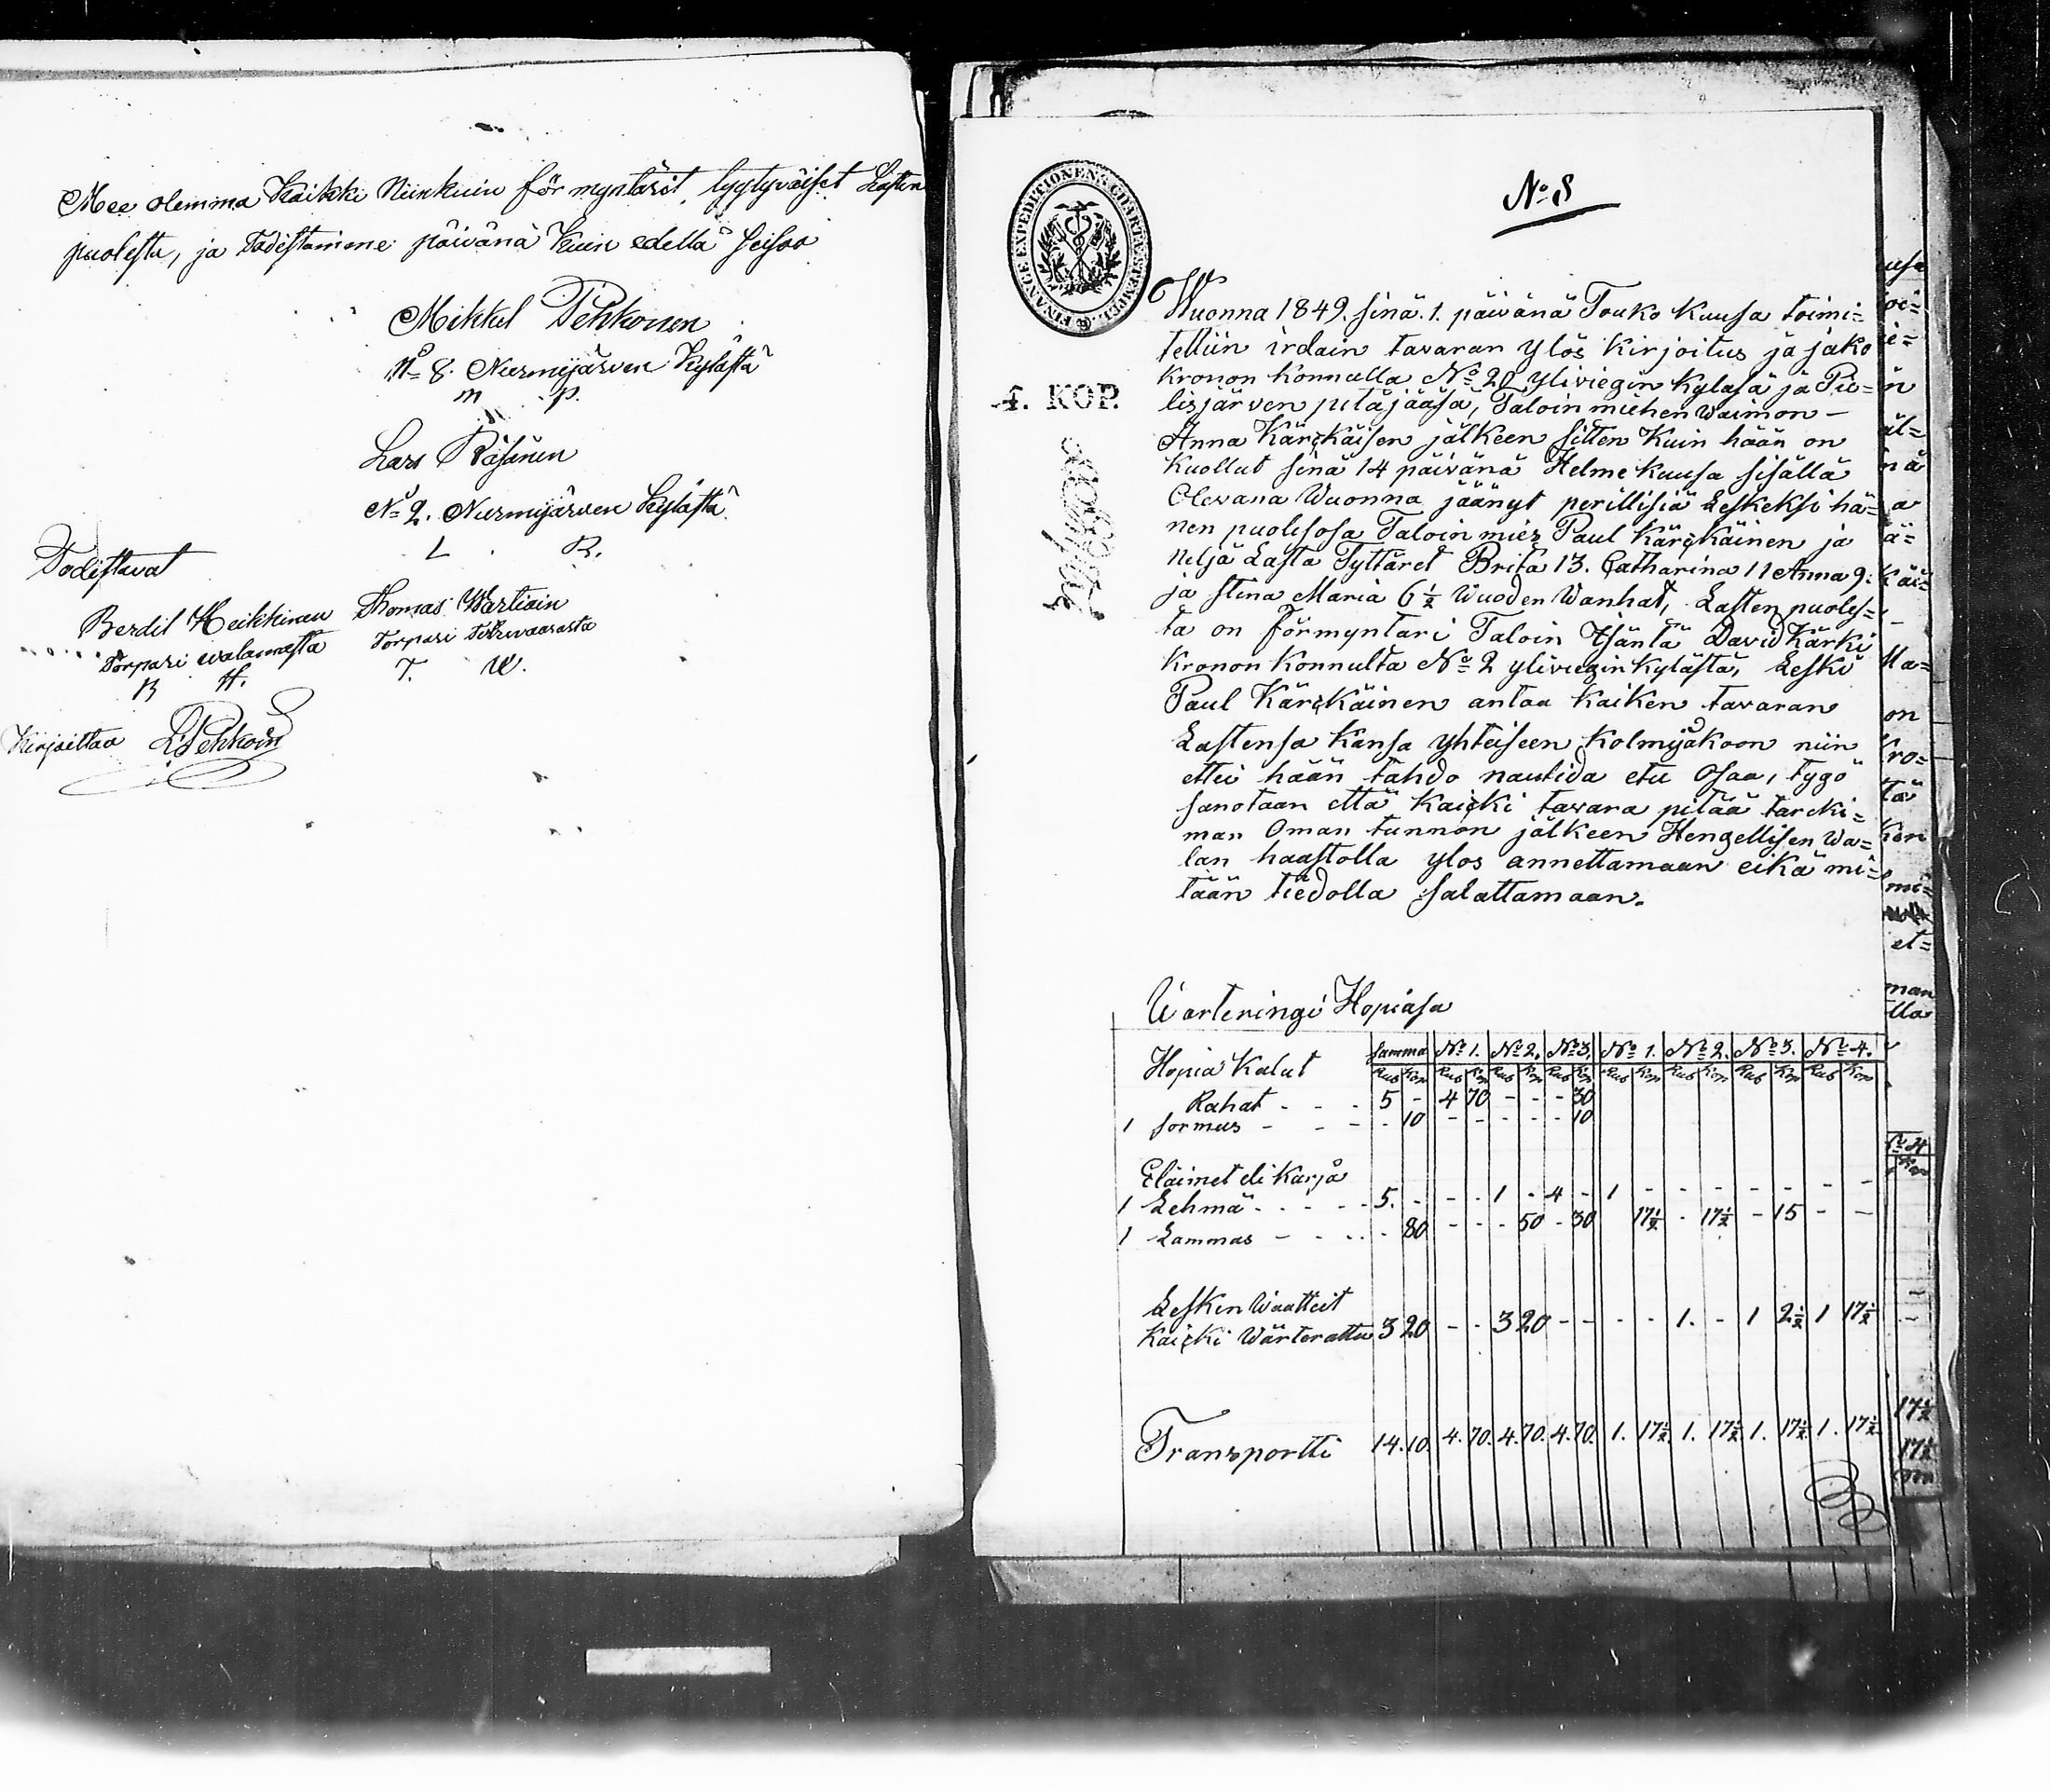 Mee olemma Kaikki Niinkuin förmyntärit, tyytyväiset Lasten
puolesta, ja Todistamme päivänä Kuin edellä seisoo
Mikkel Pehkonen
No 8. Nurmijärven Kylästä
M P.
Lars Räsänen
No 2. Nurmijärven Kylästä
L R.
Todistavat
Berdil Heikkinen Thomas Wartiain
Torpari walamasta Torpari
B H. T. W.
Kirjoittaa Pehkoin
No 8
FINANCE EXPEDITIONENS CHARTÆ STEMPEL.
4. KOP.
Wuonna 1849. sinä. 1. päivänä Touko Kuusa toimi=
tettiin irdain tavaran ylös Kirjoitus ja jako
Kronon Konnulla No 20 yliviegin Kyläsä ja Pie=
lisjärven pitäjääsä, Taloin miehen waimon —
Anna Kärckäisen jälkeen sitten Kuin hään on
Kuollut sinä 14 päivänä Helme Kuusa sisällä
Olevana Wuonna jäänyt perillisiä Leskeksi hä=
nen puolisosa Taloin mies Paul Kärckäinen ja
neljä Lasta Tyttäret Brita 13. Catharina 11 Anna 9.
ja Stina Maria 6½ Wuoden Wanhat, Lasten puoles=
ta on förmyntäri Taloin Isäntä David Kärki
Kronon Konnulta No 2 yliviegin Kylästä, Leski
Paul Kärckäinen antaa Kaiken tavaran
Lastensa Kansa yhteiseen Kolmijakoon niin
ettei hään tahdo nautida etu Osaa, tygö
sanotaan että Kaicki tavara pitää tarcki=
man Oman tunnon jälkeen Hengellisen Wa=
lan haastolla ylos annettamaan eikä mi=
tään tiedolla salattamaan.
Warteringi Hopiasa
Hopia Kalut Samma No 1. No 2. No 3. No 1. No 2. No 3. No 4.
Rub Kop Rub Kop Rub Kop Rub Kop Rub Kop Rub Kop Rub Kop Rub Kop
Rahat - - - 5 - 4 70 - - - 30
1 sormus - - - - 10 - - - - - 10
Eläimet eli Karja
1 Lehmä - - - - 5. - - - 1 - 4 - 1 - - - - - - -
1 Lammas - - - - 80 - - - 50 - 30 17½ - 17½ - 15 - -
Lesken Waatteit
Kaicki Wärterattu 3 20 - - 3 20 - - - - 1. - 1 2½ 1 17½
Transportti 14. 10. 4. 70. 4. 70. 4. 70. 1. 17½. 1. 17½ 1. 17½ 1. 17½